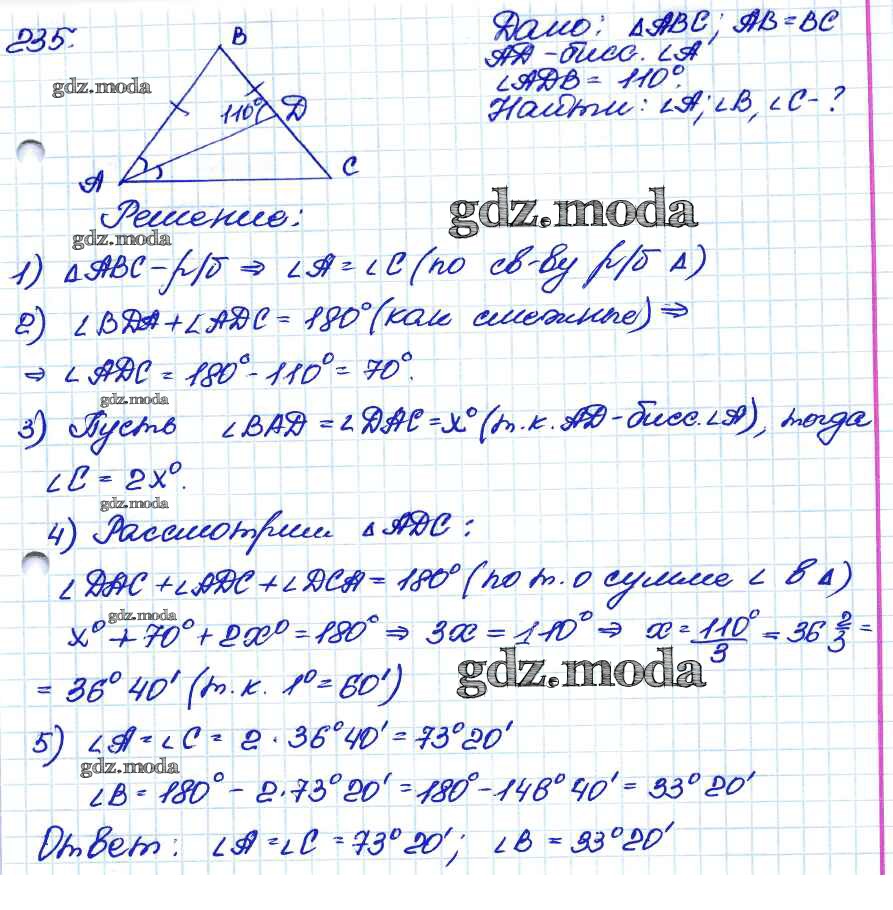 235.
B
Дано: △ABC; AB=BC
AD-бисс. ∠A
∠ADB = 110°.
Найти: ∠A; ∠B, ∠C-?
gdz.moda
110°
D
A
C
Решение:
gdz.moda
gdz.moda
1) △ABC-р/б ⇒ ∠A=∠C (по св-ву р/б △)
2) ∠BDA+∠ADC = 180° (как смежные) ⇒
⇒ ∠ADC = 180°-110° = 70°.
gdz.moda
3) Пусть ∠BAD = ∠DAC = x° (т.к. AD-бисс. ∠A), тогда
∠C = 2x°.
gdz.moda
4) Рассмотрим △ADC:
∠DAC+∠ADC+∠DCA = 180° (по т. о сумме ∠ в △)
gdz.moda
x° + 70° + 2x° = 180° ⇒ 3x = 110° ⇒ x = 110°/3 = 36 2/3 =
gdz.moda
= 36° 40' (т.к. 1° = 60')
5) ∠A = ∠C = 2 · 36° 40' = 73° 20'
gdz.moda
∠B = 180° - 2·73° 20' = 180° - 146° 40' = 33° 20'
Ответ: ∠A = ∠C = 73° 20'; ∠B = 33° 20'